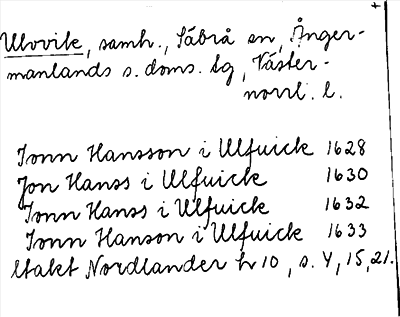 Ulvvik, samh., Säbrå sn, Ånger-
manlands s. doms. tg, Väster-
norrl. l.
Jonn Hansson i Ulfuick 1628
Jon Hanss i Ulfuick 1630
Jonn Hanss i Ulfuick 1632
Jonn Hanson i Ulfuick 1633
Utakt Nordlander h 10, s. 4, 15, 21.